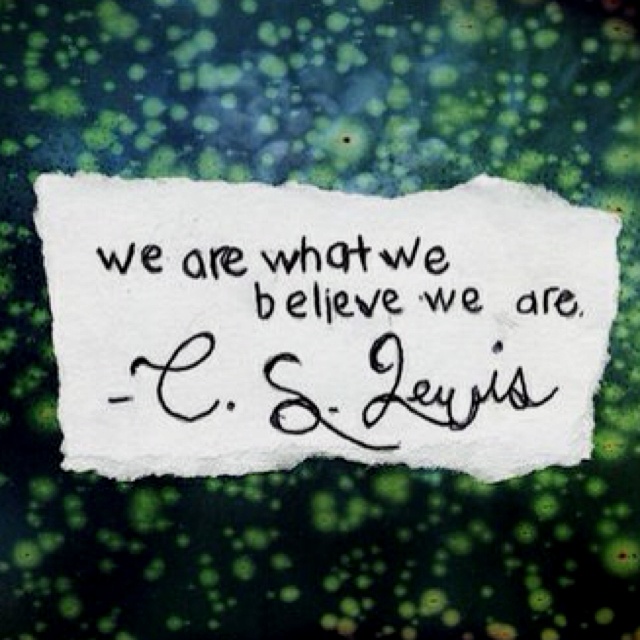 we are what we
believe we are.
- C. S. Lewis